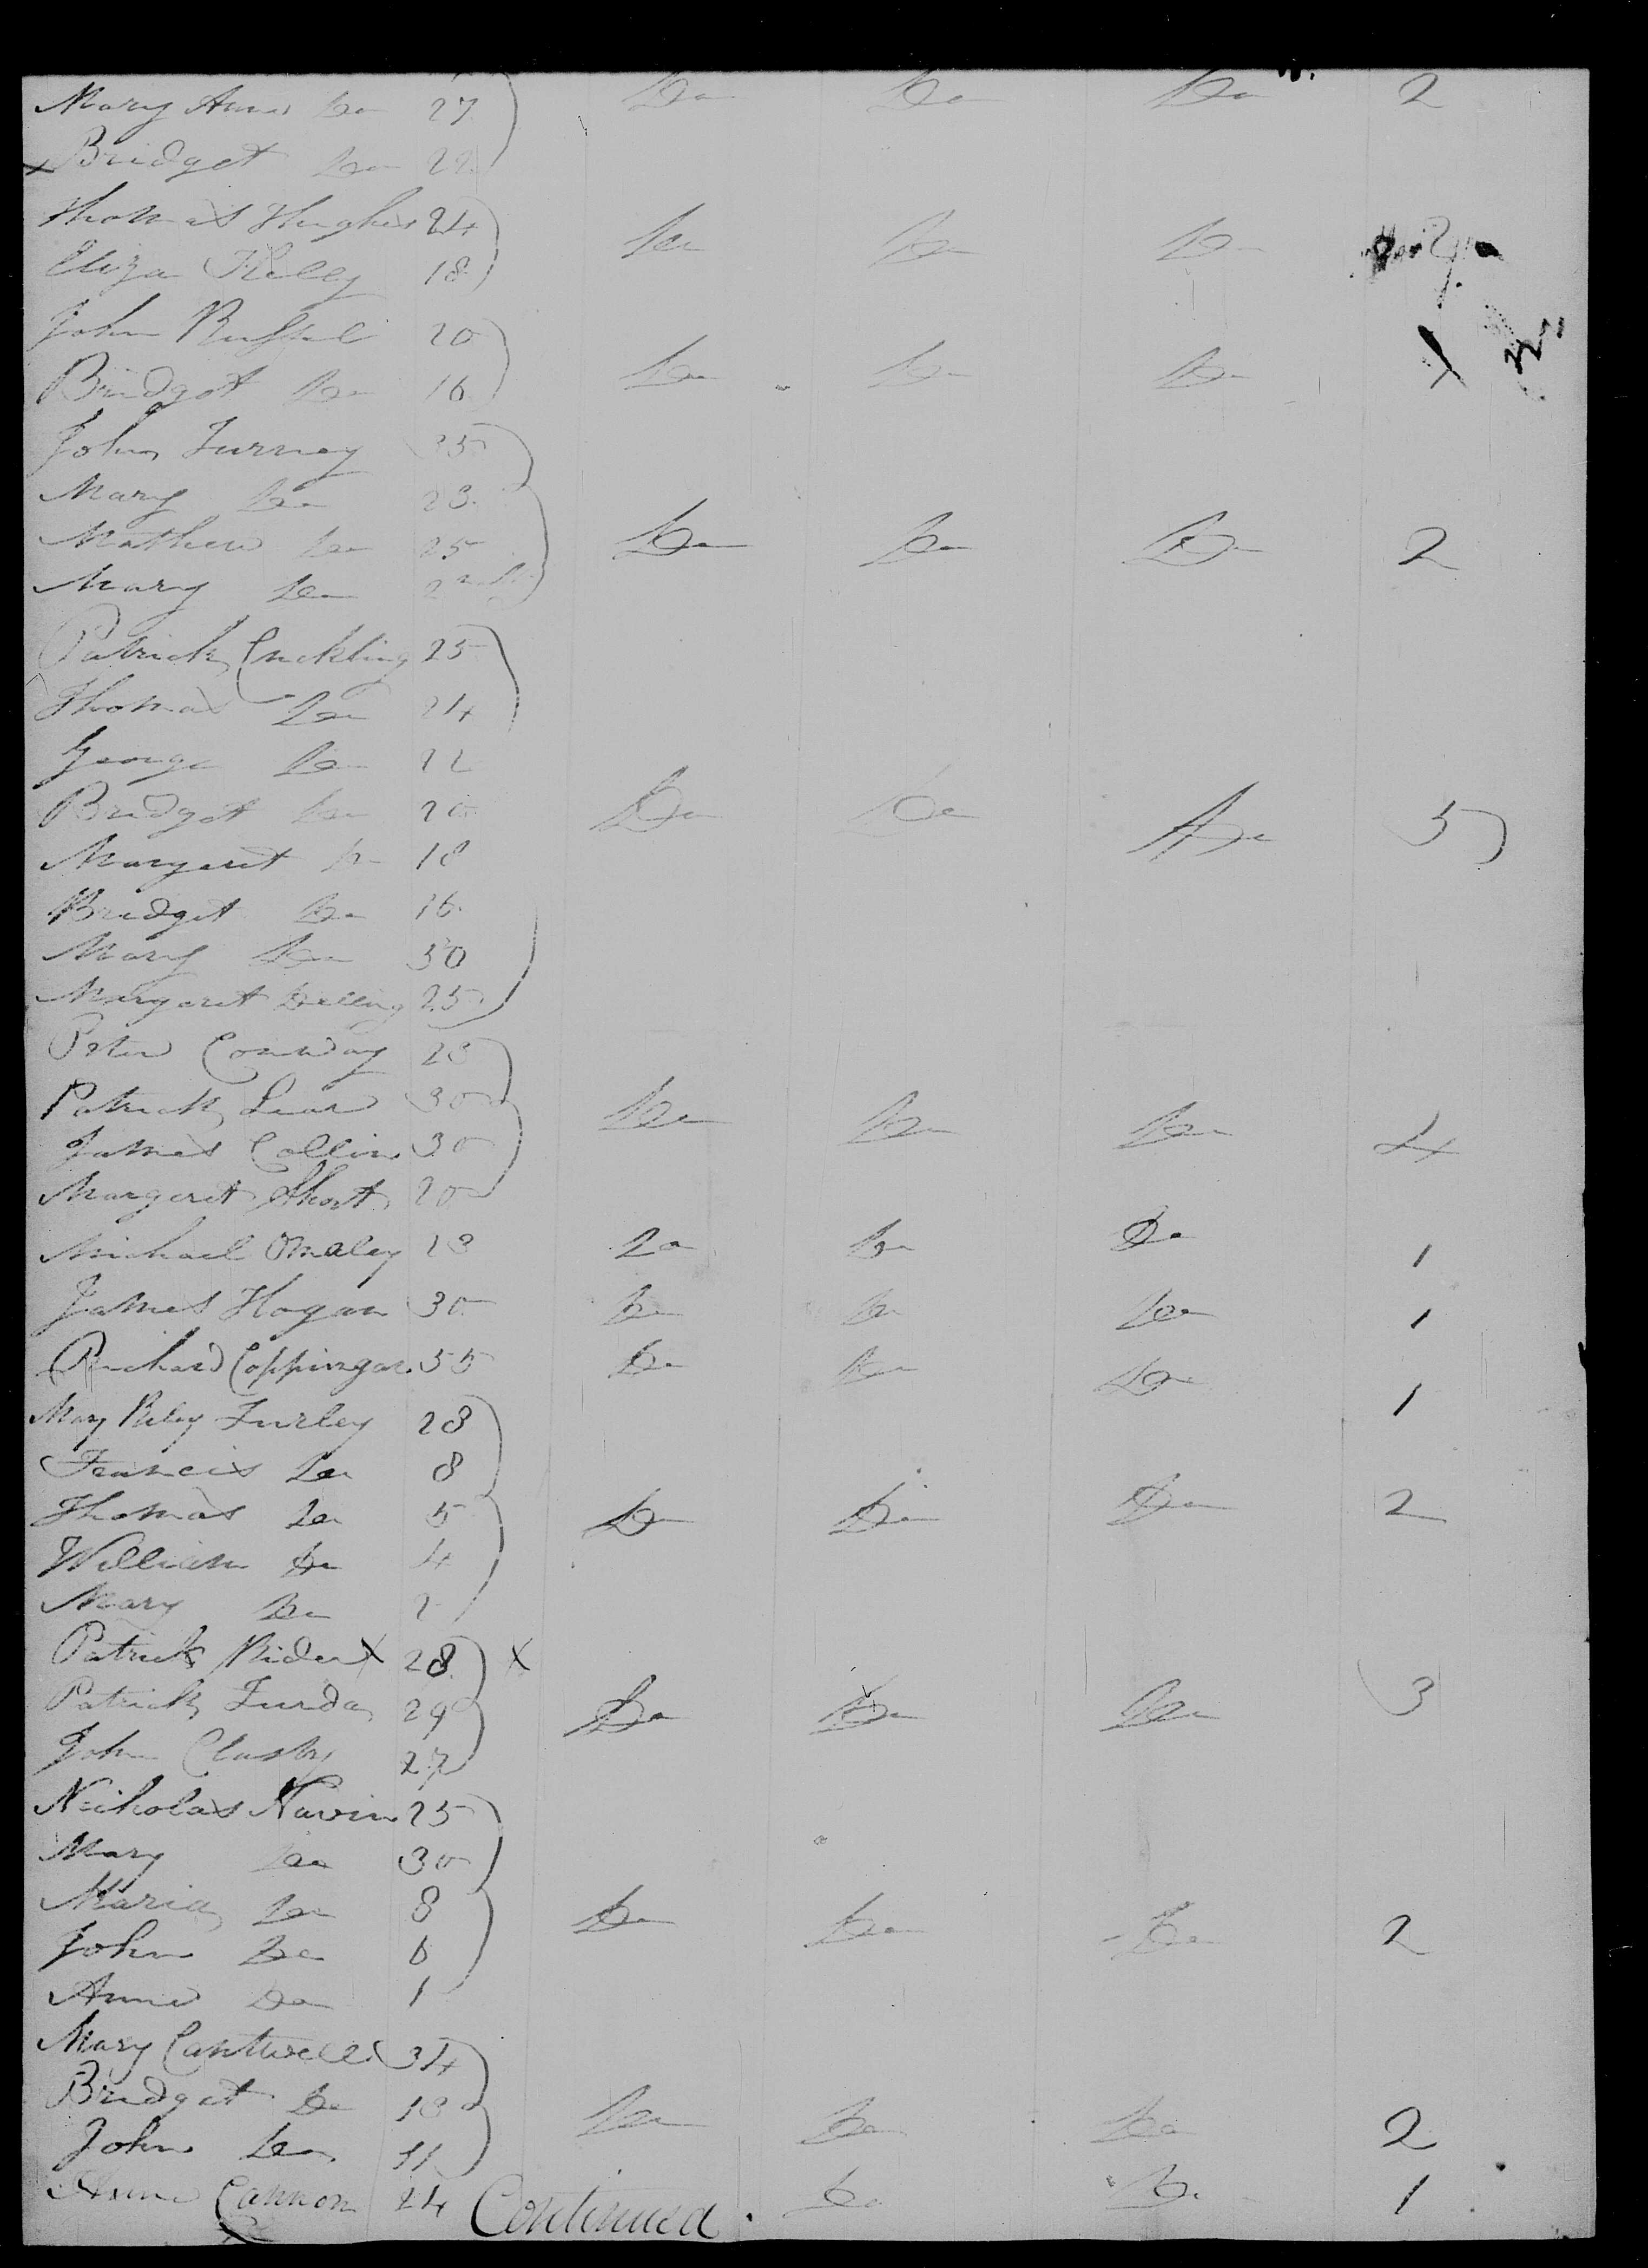 Mary Anne Do 27 Do Do Do 2
x Bridget Do 22
Thomas Hughes 24 Do Do Do
Eliza Kelly 18
John Russel 20
Bridget Do 16 Do Do Do 1
John Furney 35
Mary Do 23
Mathew Do 25 Do Do Do 2
Mary Do
Patrick Cuckling 25
Thomas Do 24
George Do 22
Bridget Do 20 Do Do Do 5
Margaret Do 18
Bridget Do 16
Mary Do 30
Margaret Delling 25
Peter Conway 23
Patrick 30 Do Do Do 4
James Collins 30
Margeret Short 20
Michael Omaley 23 Do Do Do 1
James Hogan 30 Do Do Do 1
Richard Coppingar 35 Do Do Do 1
Mary Riley Furley 28
Francis Do 8
Thomas Do 5 Do Do Do 2
William Do 4
Mary Do 2
Patrick Rider x 28 x
Patrick 29 Do Do Do 3
John Clusky 27
Nicholas Navin 25
Mary Do 30
Maria Do 8 Do Do Do 2
John Do 6
Anne Do 1
Mary Cantwell 34
Bridget Do 18 Do Do Do 2
John Do 11
Anne Cannon 24 Continued. Do Do 1